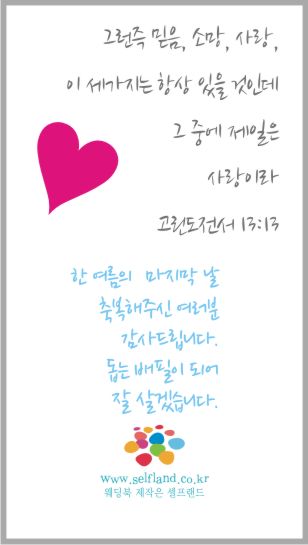 그런즉 믿음, 소망, 사랑,
이 세가지는 항상 있을 것인데
그 중에 제일은
사랑이라
고린도전서 13:13
한 여름의 마지막 날
축복해주신 여러분
감사드립니다.
돕는 배필이 되어
잘 살겠습니다.
www.selfland.co.kr
웨딩북 제작은 셀프랜드